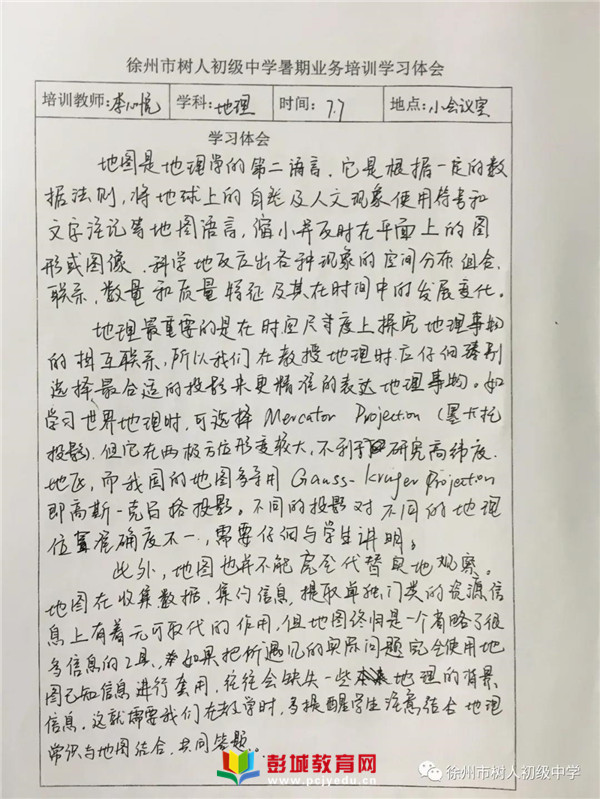 徐州市树人初级中学暑期业务培训学习体会
培训教师:李心悦 学科:地理 时间: 7.7 地点:小会议室
学习体会
地图是地理学的第二语言,它是根据一定的数
据法则,将地球上的自然及人文现象使用符号和
文字注记等地图语言,缩小并及时在平面上的图
形或图像,科学地反应出各种现象的空间分布,组合,
联系,数量和质量特征及其在时间中的发展变化。
地理最重要的是在时空尺寸度上探究地理事物
的相互联系,所以我们在教授地理时应仔细甄别
选择最合适的投影来更精准的表达地理事物。如
学习世界地理时,可选择Mercator Projection(墨卡托
投影),但它在两极方位形变较大,不利于研究高纬度
地区,而我国的地图多采用Gauss-Kruger Projection
即高斯-克吕格投影。不同的投影对不同的地理
位置准确度不一,需要仔细与学生讲明。
此外,地图也并不能完全代替实地观察。
地图在收集数据,集约信息,提取单独门类的资源信
息上有着无可取代的作用,但地图终归是一个省略了很
多信息的工具,如果把所遇见的实际问题完全使用地
图已知信息进行套用,往往会缺失一些地理的背景
信息,这就需要我们在教学时,多提醒学生注意结合地理
常识与地图结合,共同答题。
彭城教育网
www.pcjyedu.cn
徐州市树人初级中学